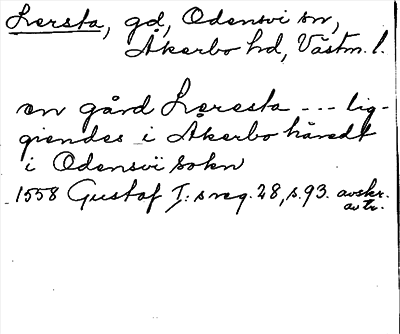 Lersta, gd, Odensvi sn,
Åkerbo hd, Västm. l.
en gård Leresta --- lig-
giendes i Åkerbo häredt
i Odensvi sokn
1558 Gustaf I:s reg. 28, s. 93. avskr.
av tr.